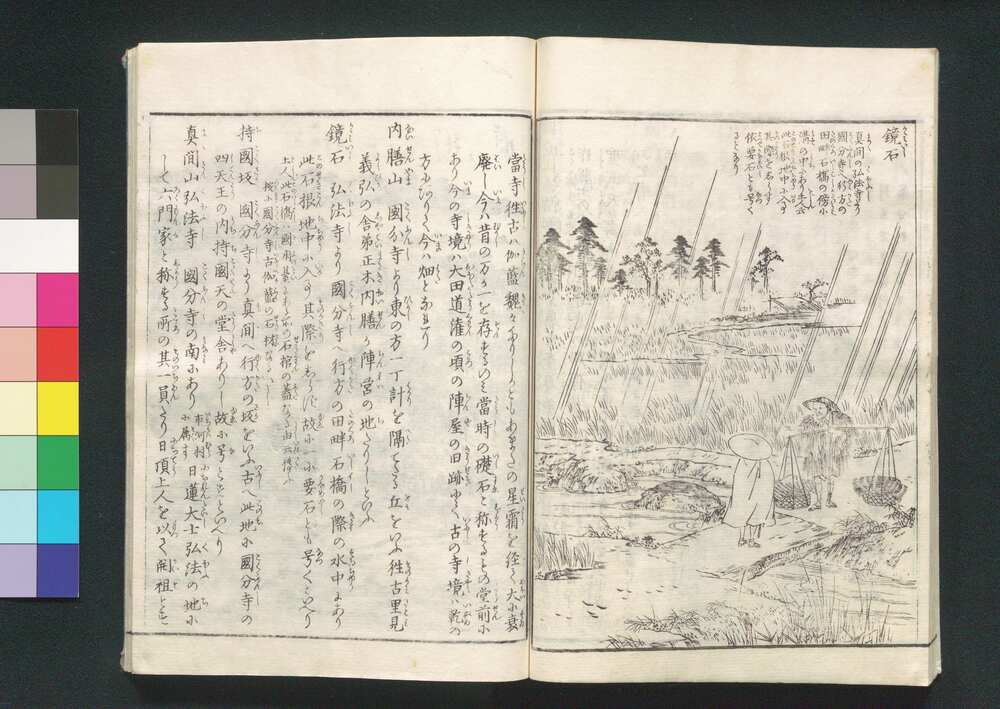 鏡石
真間の弘法寺より
国分寺へ行方の
田畔石橋の傍小
溝の中にあり
此石根地中に入て
其際をしらず
依て要石とも号く
となり
當寺往古ハ伽藍魏々たりしかとも あまたの星霜を経て大に衰
廃し今ハ昔の万か一を存するのミ當時の礎石と称するもの堂前に
あり今の寺境ハ大田道灌の頃の陣屋の旧跡にて古の寺境ハ
方にありて今ハ畑となれり
内膳山 國分寺より東の方一丁計を隔てたる丘をいふ往古里見
義弘の舎弟正木内膳か陣営の地たりしといふ
鏡石 弘法寺より國分寺へ行方の田畔石橋の際の水中にあり
此石根地中に入て其際をしらず故に一に要石とも号くといへり
持國坂 國分寺より真間へ行方の坂をいふ古へ此地に國分寺の
四天王の内持國天の堂舎ありし故に号とすといへり
真間山弘法寺 國分寺の南にあり
市河村
に属す
日蓮大士弘法の地に
して六門家と称する所の其一員たり日頂上人を以て開祖とす